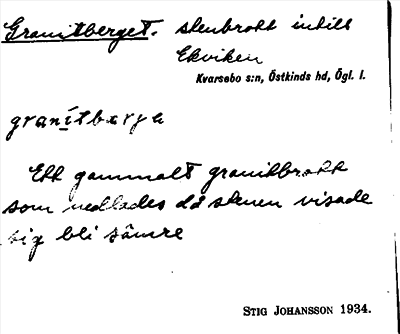 Granitberget. stenbrott intill
Ekviken
Kvarsebo s:n, Östkinds hd, Ögl. l.
granítbærje
Ett gammalt granitbrott
som nedlades då stenen visade
sig bli sämre
STIG JOHANSSON 1934.